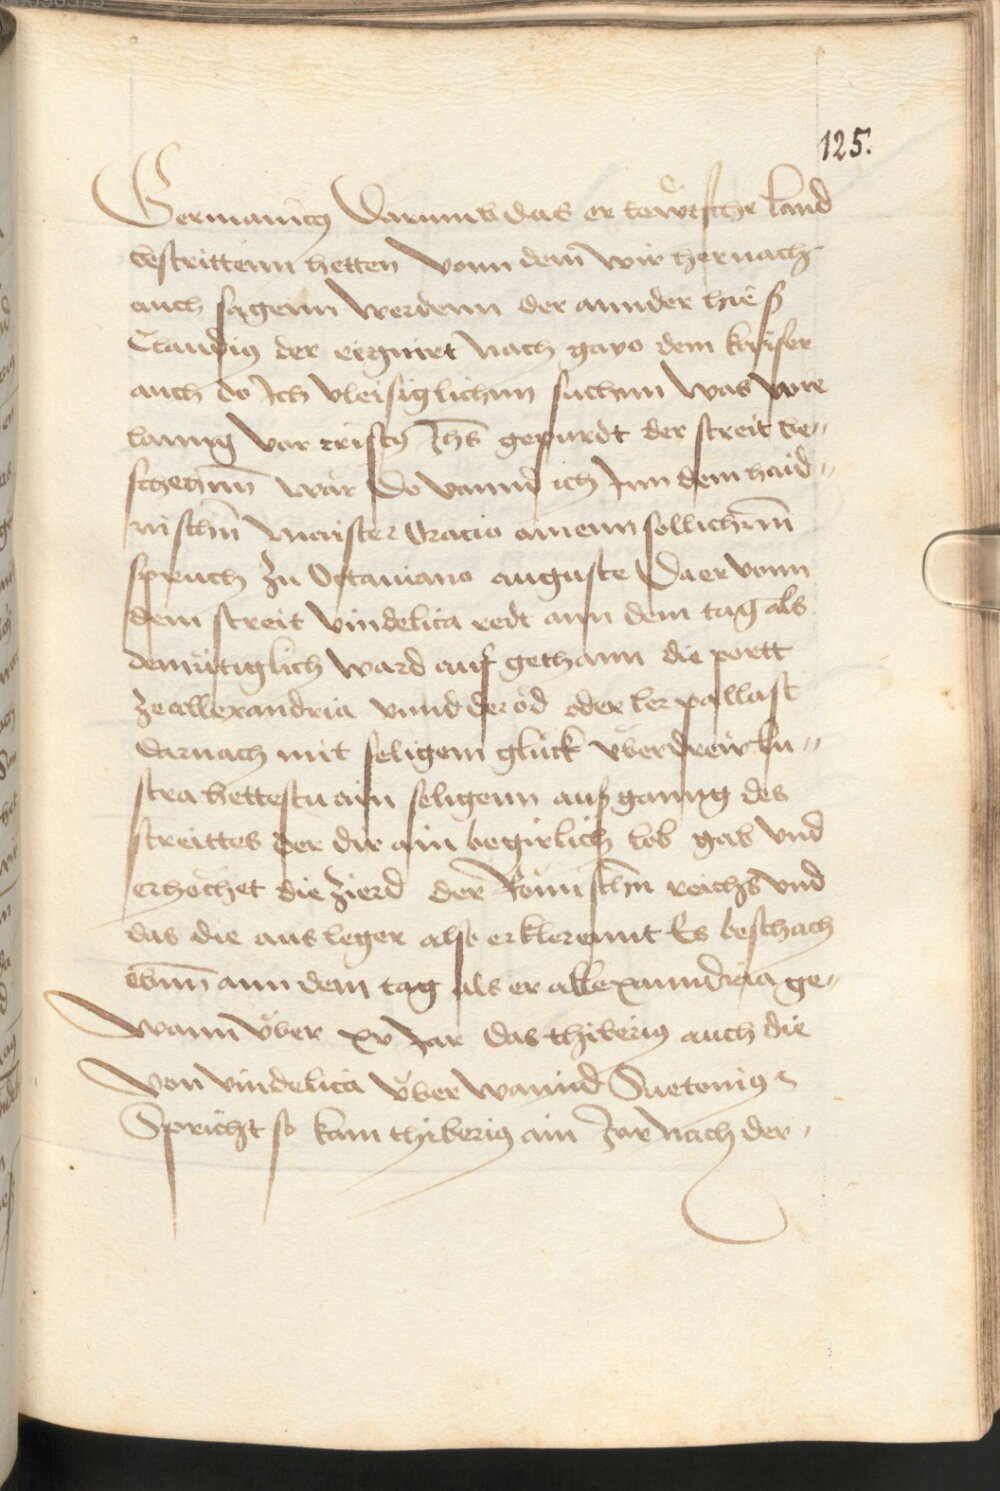 125.
Germanicus Darumb das er tewtsche land
bestrittenn hetten Vonn dem wir hernach
auch sagenn werdenn der annder hieß
Claudius der regnirt nach gayo dem kaiser
auch do Ich vleisiglichnn suchnn was wie
lanng vor cristus Jhs gepurdt der streit be„
schechnn war Do vannd ich Jnn dem haid„
nischn maister Oracio ainenn sollichnn
spruch Zu Octaviano auguste Da er vonn
dem streit vindelica redt ann dem tag als
demutiglich ward auf gethann die portt
Ze allexandria vnnd der öd oder ler pallast
darnach mit seligem gluck vber drew lu„
stra hettestu ain seligenn aussganng des
streittes der dir ain begirlich lob gab vnd
erhöchet die Zierd der Römischn reichs vnd
das die ausleger also erklerennt Es beschach
ebnn ann dem tag als er allexanndria ge„
wann vber xv Jar das thiberius auch die
von vindelica vber wannd Suetonius
Spricht so kam thiberius ain Jar nach der